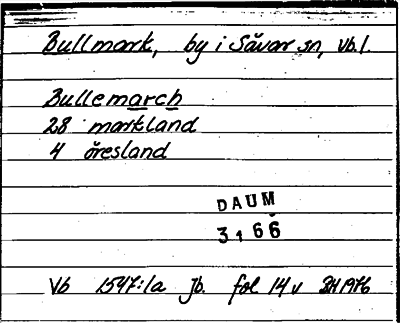 Bullmark, by i Sävar sn, Vb.l.
Bullemarch
28 markland
4 öresland
DAUM
3166
Vb 1547:1a Jb. fol 14v BH 1976